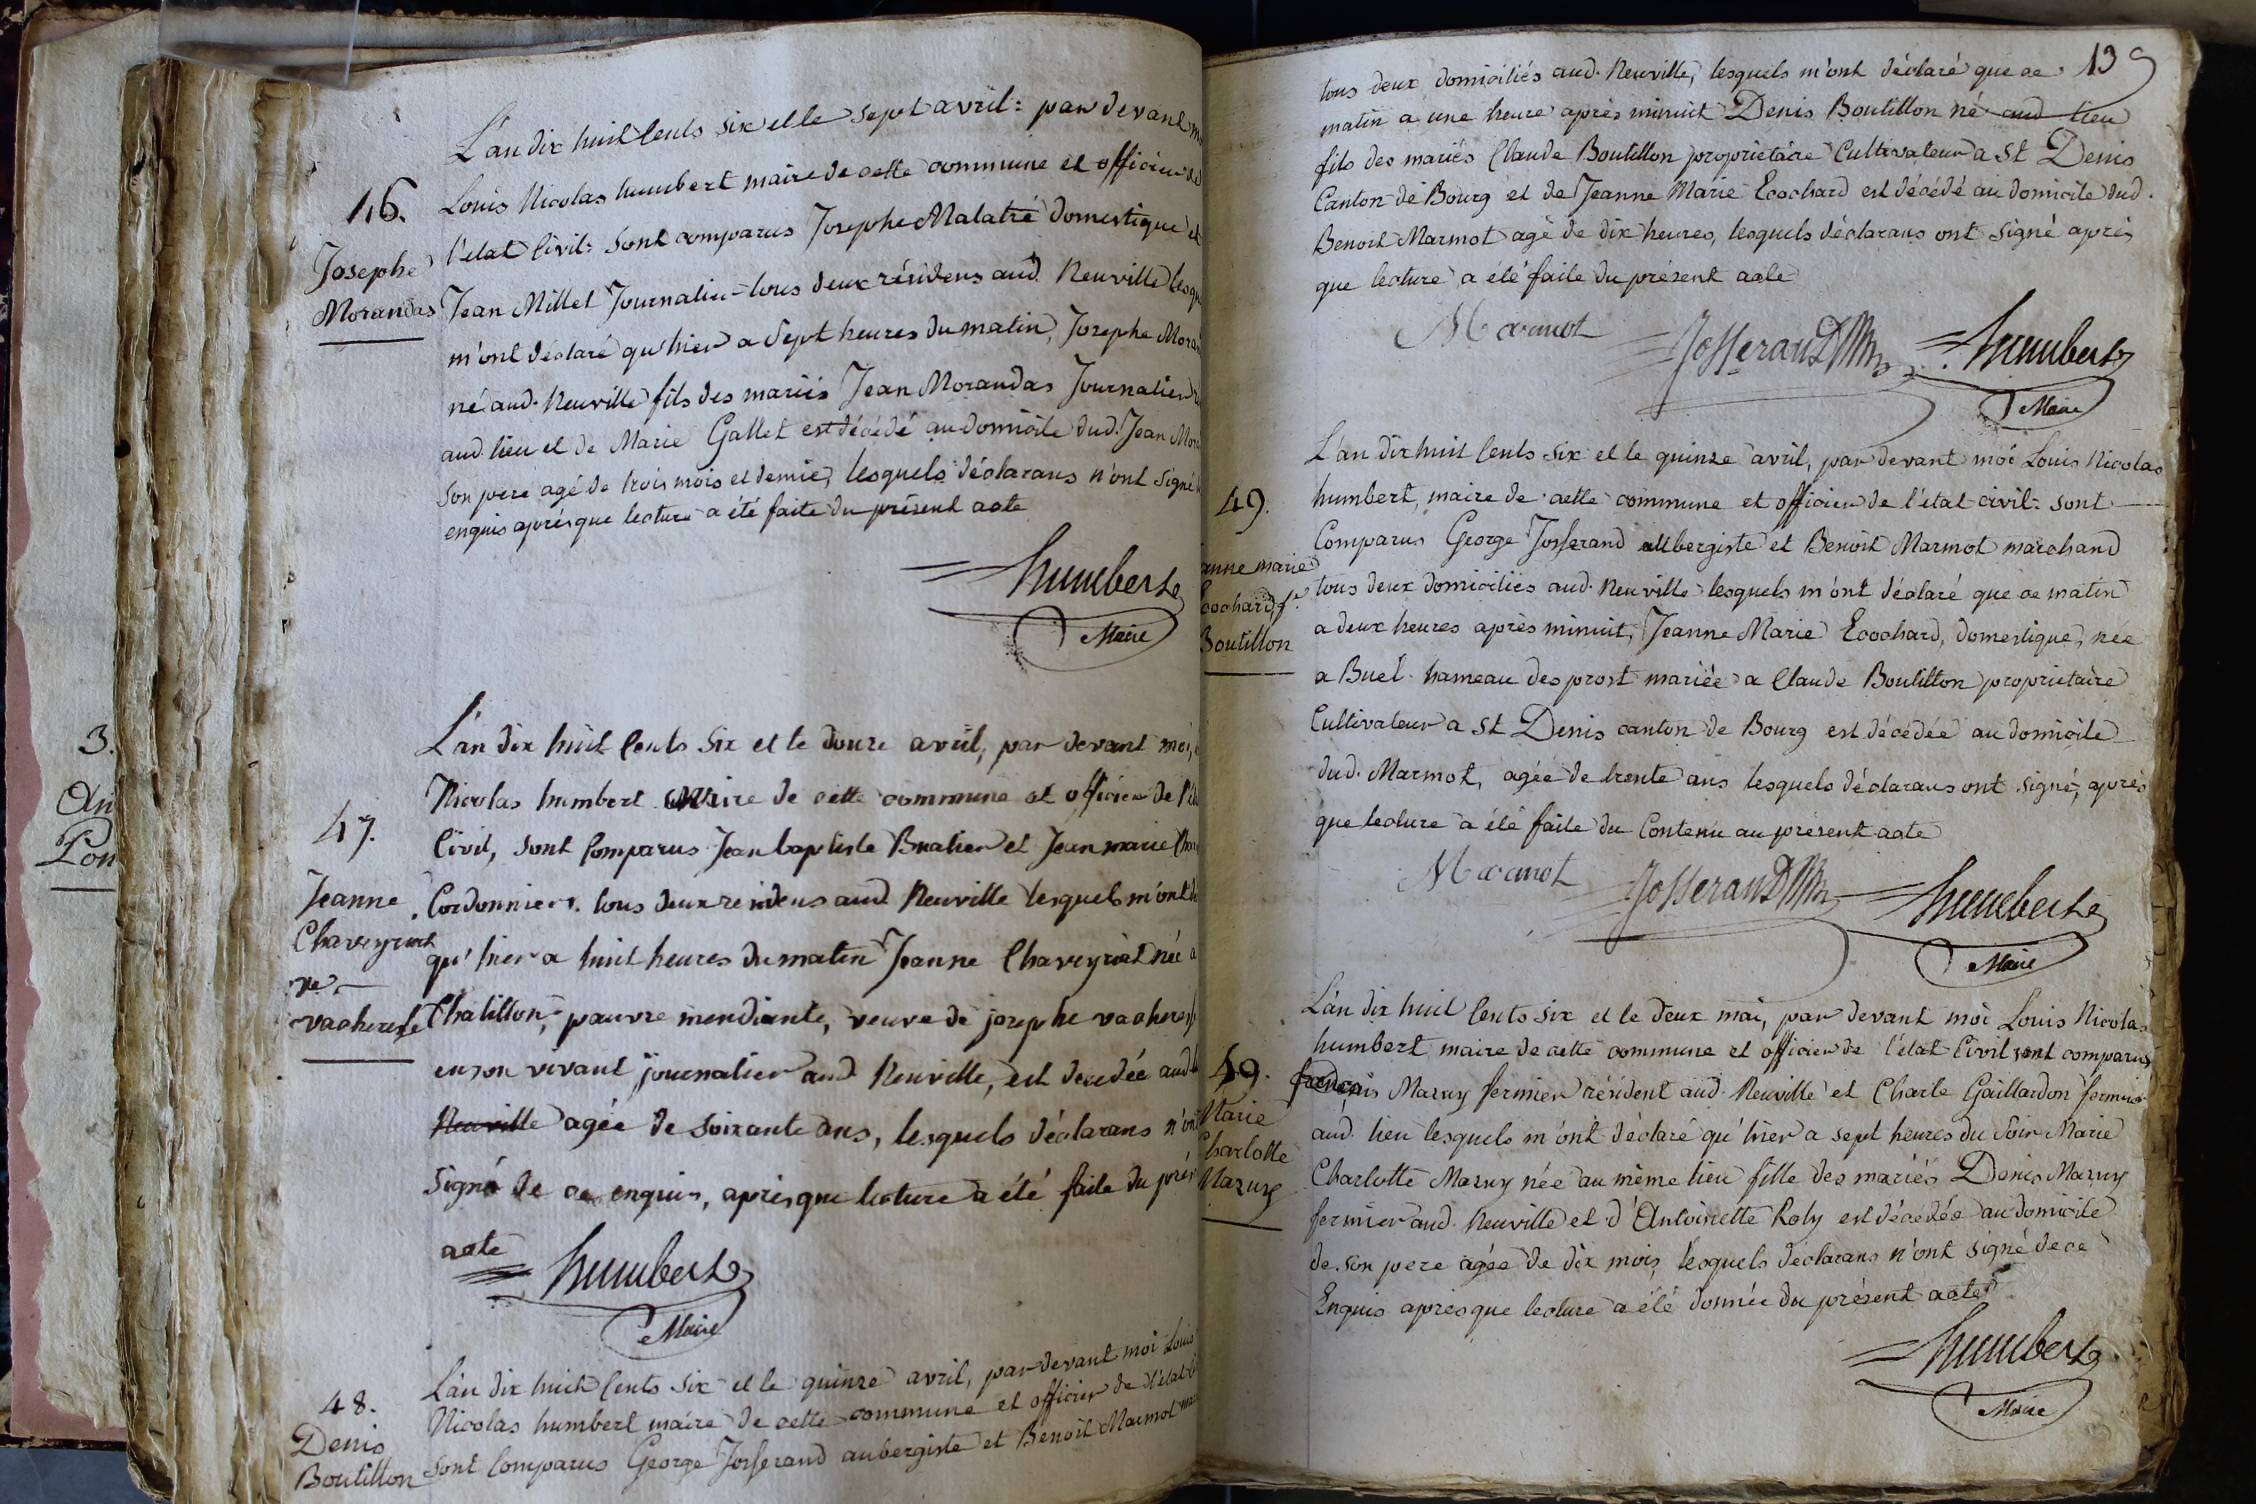 3.
An
Pon
46.
Josephe
Morandas
L'an dix huit Cents six et le sept avril: par devant m
Louis Nicolas humbert maire de cette commune et officier de
l'etat Civil: sont comparus Josephe Malatré domestique et
Jean Millet Journalier tous deux résidens aud. Neuville lesqu
m'ont déclaré qu'hier a Sept heures du matin, Josephe Moran
né aud. Neuville fils des mariés Jean Morandas Journalier
aud. lieu et de Marie Gallet est décédé au domicile dud. Jean Mor
son pere agé de trois mois et demie, lesquels déclarans n'ont signé
enquis après que lecture a été faite du présent acte
humbert
Maire
47.
Jeanne
Chaveyriat
ve
vacheresse
L'an dix huit Cents Six et le douze avril, par devant moi,
Nicolas humbert maire de cette commune et officier de l'é
Civil, sont Comparus Jean baptiste Buatier et Jean marie
Cordonniers. tous deux residens aud Neuville lesquels m'ont
qu'hier a huit heures du matin Jeanne Chaveyriat née a
Chatillon, pauvre mendiante, veuve de josephe vacheres
en son vivant journalier aud. Neuville, est decedée aud
Neuville agée de soixante ans, lesquels déclarans n'ont
Signé de ce enquis, après que lecture a été faite du prés
acte
humbert
Maire
48.
Denis
Boutillon
L'an dix huit Cents Six et le quinze avril, par devant moi Louis
Nicolas humbert maire de cette commune et officier de l'état
sont Comparus George Josserand aubergiste et Benoit Marmot
139
tous deux domiciliés aud. Neuville, lesquels m'ont déclaré que ce
matin a une heure après minuit Denis Boutillon né aud lieu
fils des mariés Claude Boutillon proprietaire Cultivateur a St Denis
Canton de Bourg et de Jeanne Marie Ecochard est décédé au domicile dud.
Benoit Marmot agé de dix heures, lesquels déclarans ont Signé après
que lecture a été faite du présent acte
Marmot Josserand humbert
Maire
49.
anne marie
Ecochard, f.e
Boutillon
L'an dix huit Cents six et le quinze avril, par devant moi Louis Nicolas
humbert, maire de cette commune et officier de l'etat civil: sont
Comparus George Josserand aubergiste et Benoit Marmot marchand
tous deux domiciliés aud. Neuville lesquels m'ont déclaré que ce matin
a deux heures après minuit, Jeanne Marie Ecochard, domestique, née
a Buel hameau des prost mariée a Claude Boutillon proprietaire
Cultivateur a St Denis canton de Bourg est décédée au domicile
dud. Marmot, agée de trente ans lesquels déclarans ont signé, après
que lecture a été faite du Contenu au présent acte
Marmot Josserand humbert
Maire
49.
Marie
Charlotte
Mazuy
L'an dix huit Cents six et le deux mai, par devant moi Louis Nicolas
humbert maire de cette commune et officier de l'état Civil sont comparus
françois Mazuy fermier résident aud. Neuville et Charle Gaillardon fermier
aud. lieu lesquels m'ont déclaré qu'hier a sept heures du Soir Marie
Charlotte Mazuy née au même lieu fille des mariés Denis Mazuy
fermier aud. Neuville et d'Antoinette Roly est décédée au domicile
de son pere agée de dix mois, lesquels déclarans n'ont signé de ce
Enquis après que lecture a été donnée du présent acte
humbert
Maire